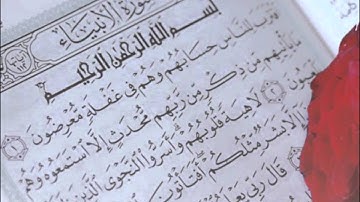 سُورَةُ الأَنبِيَاءِ
بِسْمِ اللَّهِ الرَّحْمَٰنِ الرَّحِيمِ
قْتَرَبَ لِلنَّاسِ حِسَابُهُمْ وَهُمْ فِي غَفْلَةٍ مُعْرِضُونَ ١
مَا يَأْتِيهِمْ مِنْ ذِكْرٍ مِنْ رَبِّهِمْ مُحْدَثٍ إِلَّا اسْتَمَعُوهُ وَهُمْ
٢ لَاهِيَةً قُلُوبُهُمْ وَأَسَرُّوا النَّجْوَى الَّذِينَ
إِلَّا بَشَرٌ مِثْلُكُمْ أَفَتَأْتُونَ
قَالَ رَبِّي يَعْلَمُ